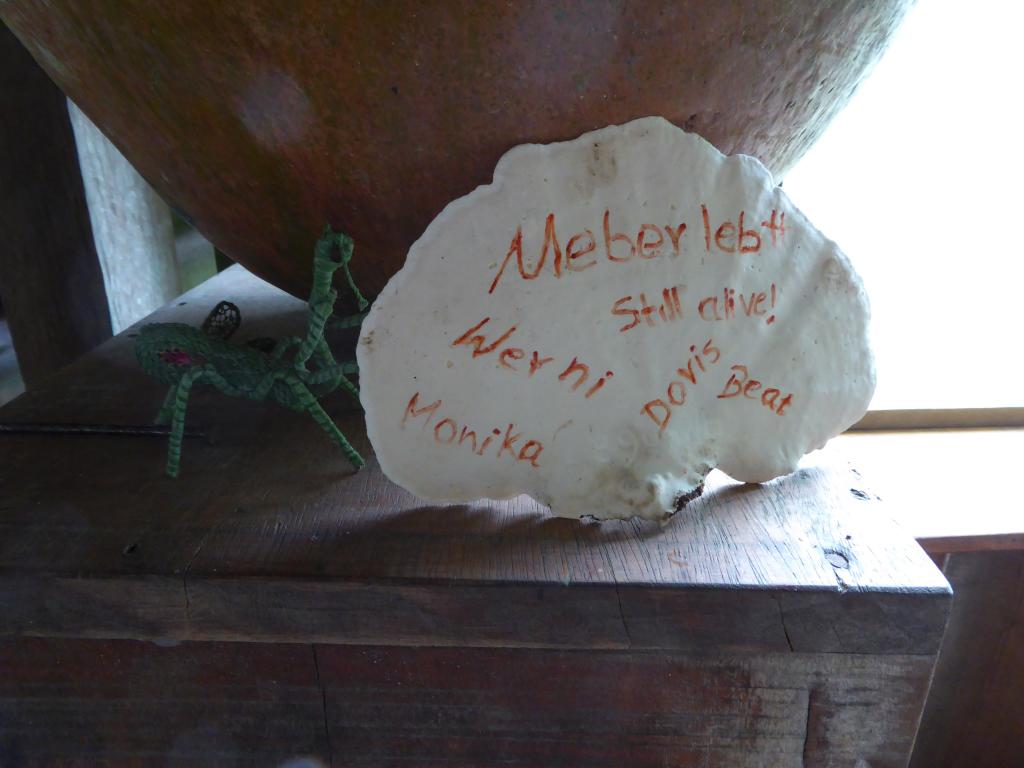 Meber lebtt
Still alive!
Werni
Doris
Beat
Monika